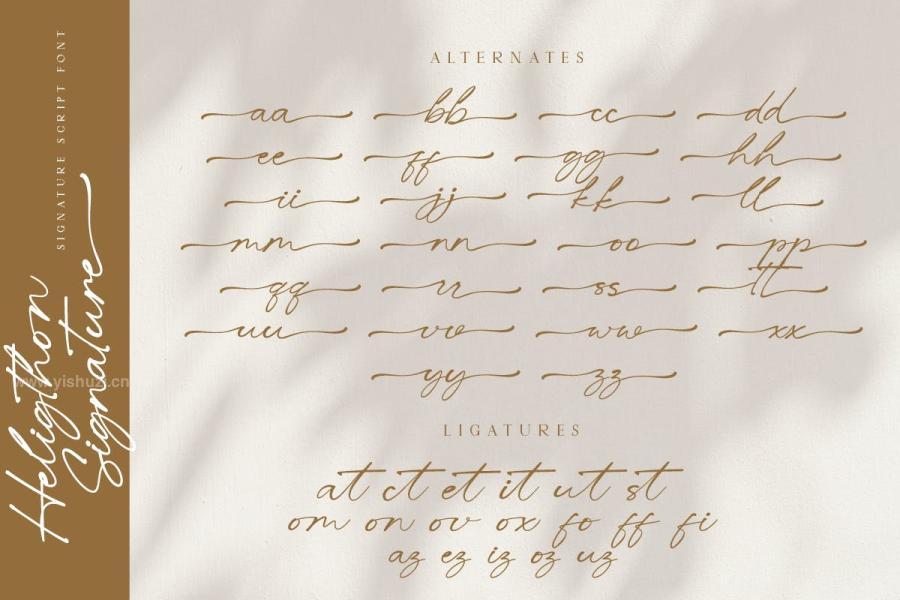 SIGNATURE SCRIPT FONT
Heligthon
Signature
www.yishuzi.cn
ALTERNATES
aa bb cc dd
ee ff gg hh
ii jj kk ll
mm nn oo pp
qq rr ss tt
uu vv ww xx
yy zz
LIGATURES
at ct et it ut st
om on ov ox fo ff fi
az ez iz oz uz